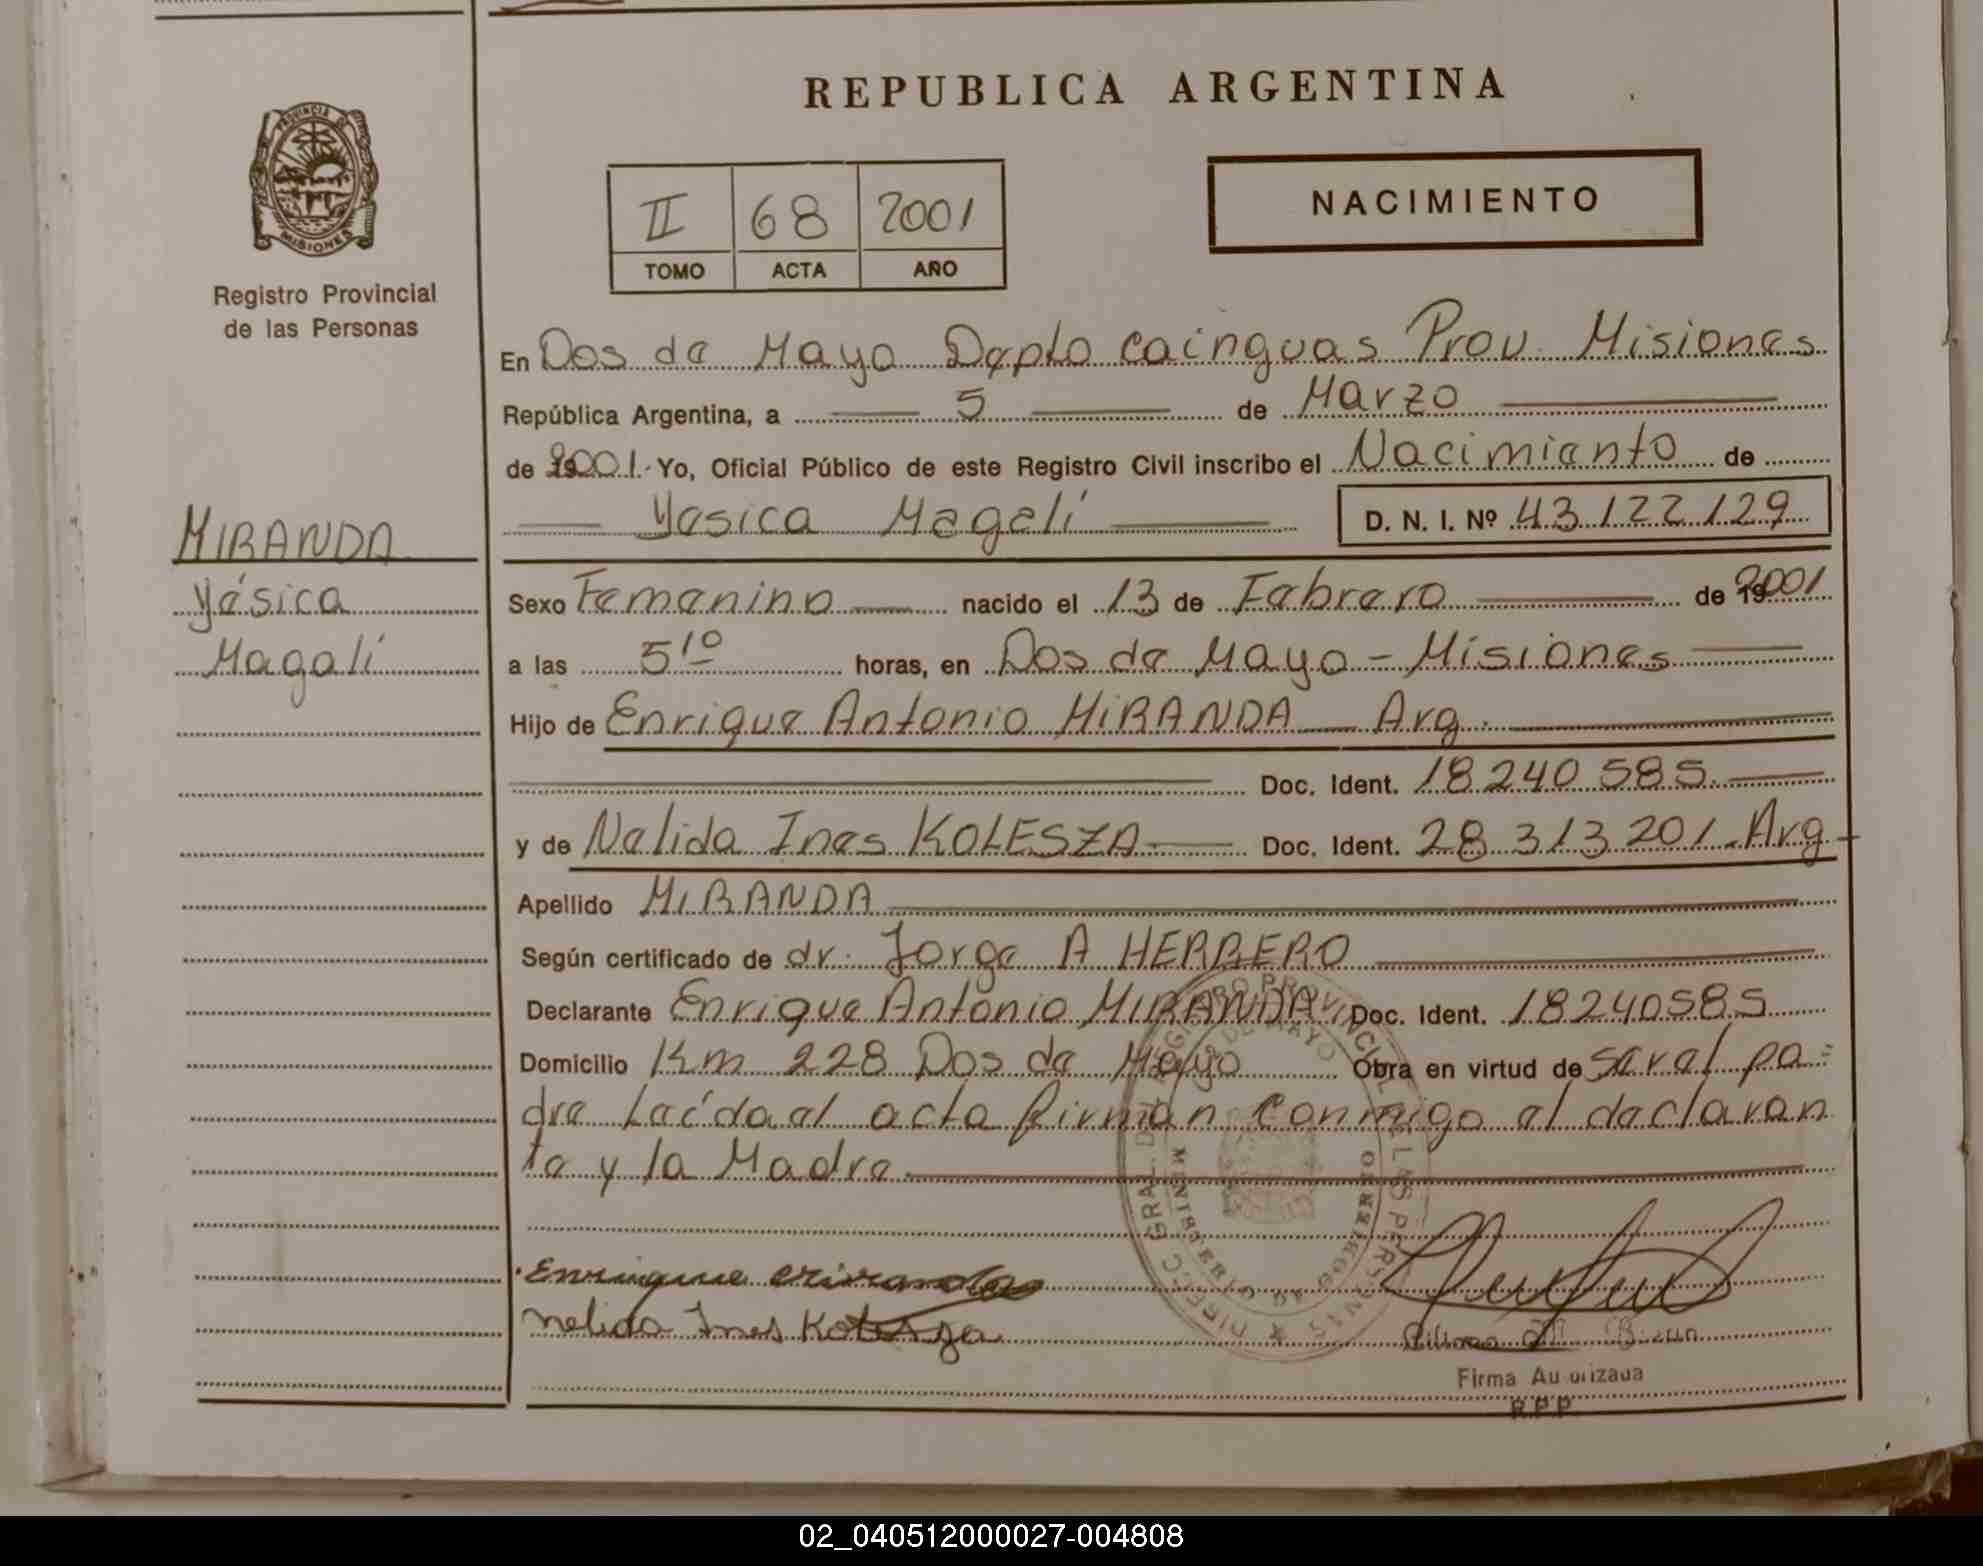 REPUBLICA ARGENTINA
PROVINCIA DE
MISIONES
Registro Provincial
de las Personas
II 68 2001
TOMO ACTA AÑO
NACIMIENTO
En Dos de Mayo Depto cainguas Prov. Misiones
República Argentina, a 5 de Marzo
de 2001. Yo, Oficial Público de este Registro Civil inscribo el Nacimiento de
Yesica Magalí D. N. I. Nº 43.122.129
MIRANDA
Yésica
Magalí
Sexo Femenino nacido el 13 de Febrero de 2001
a las 5 10 horas, en Dos de Mayo - Misiones
Hijo de Enrique Antonio MIRANDA Arg.
Doc. Ident. 18.240.585.
y de Nelida Ines KOLESZA Doc. Ident. 28.313.201. Arg
Apellido MIRANDA
Según certificado de dr. Jorge A HERRERO
Declarante Enrique Antonio MIRANDA Doc. Ident. 18240585
Domicilio Km 228 Dos de Mayo Obra en virtud de ser el pa=
dre Leída el acta firman conmigo el declaran
te y la Madre.
Enrique miranda
Nelida Ines Kolesza
DIRECC GRAL. DEL REGISTRO PROVINCIAL DE LAS PERSONAS
DOS DE MAYO
MINISTERIO DE GOBIERNO
Firma Autorizada
R.P.P.
02_040512000027-004808